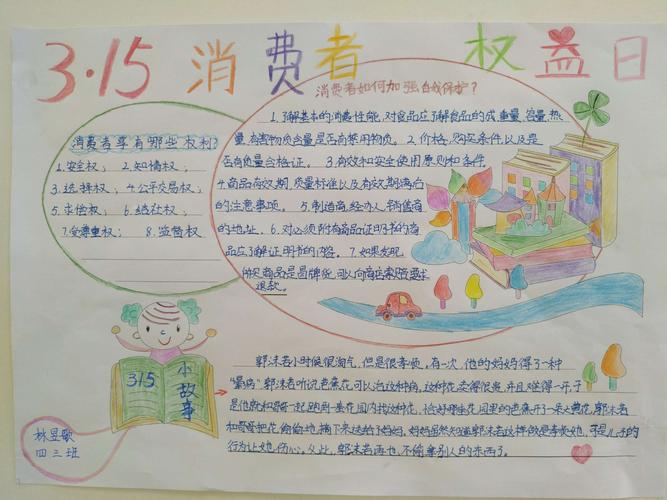 3·15 消费者 权益日
消费者享有哪些权利?
1.安全权; 2.知情权;
3.选择权; 4.公平交易权;
5.求偿权; 6.结社权;
7.受尊重权; 8.监督权
消费者如何加强自我保护?
1.了解基本的消费性能,对食品应了解食品的成,重量,容量,热
量,有害物质含量是否有禁用物质。2.价格,购买条件以及是
否有质量合格证。3.有效和安全使用原则和条件
4.商品有效期,质量标准以及有效期满后
的注意事项。5.制造商,经办人,销售商
的地址。6.对必须附有商品证明书的商
品应了解证明书的内容。7.如果发现
所买商品是冒牌货,可以向商店索赔要求
退款。
315
小故事
林昱歌
四三班
郭沫若小时候很淘气,但是很孝顺,有一次,他的妈妈得了一种
"晕病"郭沫若听说芭蕉花可以治这种病,这种花卖得很贵,并且难得一朵于
是他就和哥哥一起跑到一座花园内找这种花,恰好那座花园里的芭蕉开了一朵大黄花,郭沫若
和哥哥把花偷偷地摘下来送给了妈妈,妈妈虽然知道郭沫若这样做是孝敬她,可是儿子的
行为让她伤心。从此,郭沫若再也不偷拿别人的东西了。